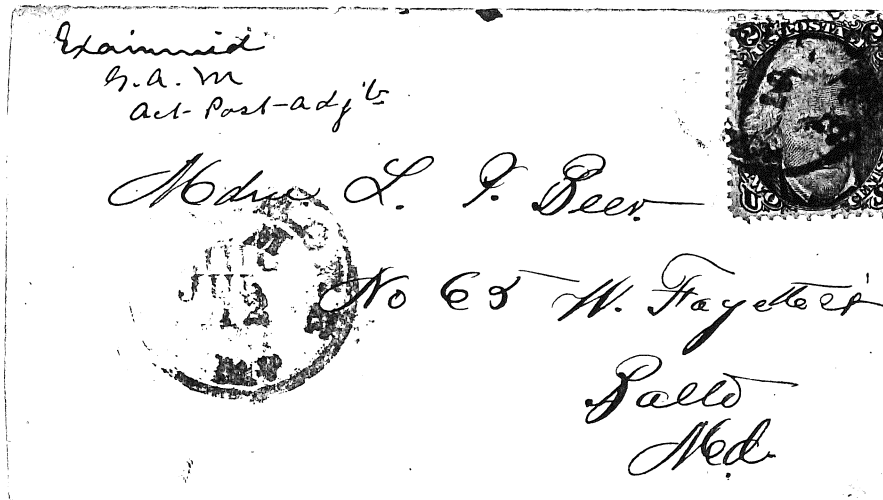 Examined
G. A. M
Act- Post-Adjt
Mdme L. P. Beer.
No 65 W. Fayette St
Balto
Md.
JUL
12